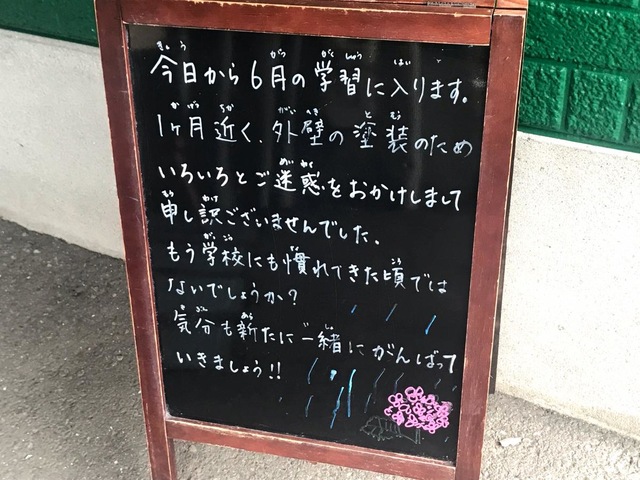 今日から6月の学習に入ります。
1ヶ月近く、外壁の塗装のため
いろいろとご迷惑をおかけしまして
申し訳ございませんでした。
もう学校にも慣れてきた頃では
ないでしょうか?
気分も新たに一緒にがんばって
いきましょう!!